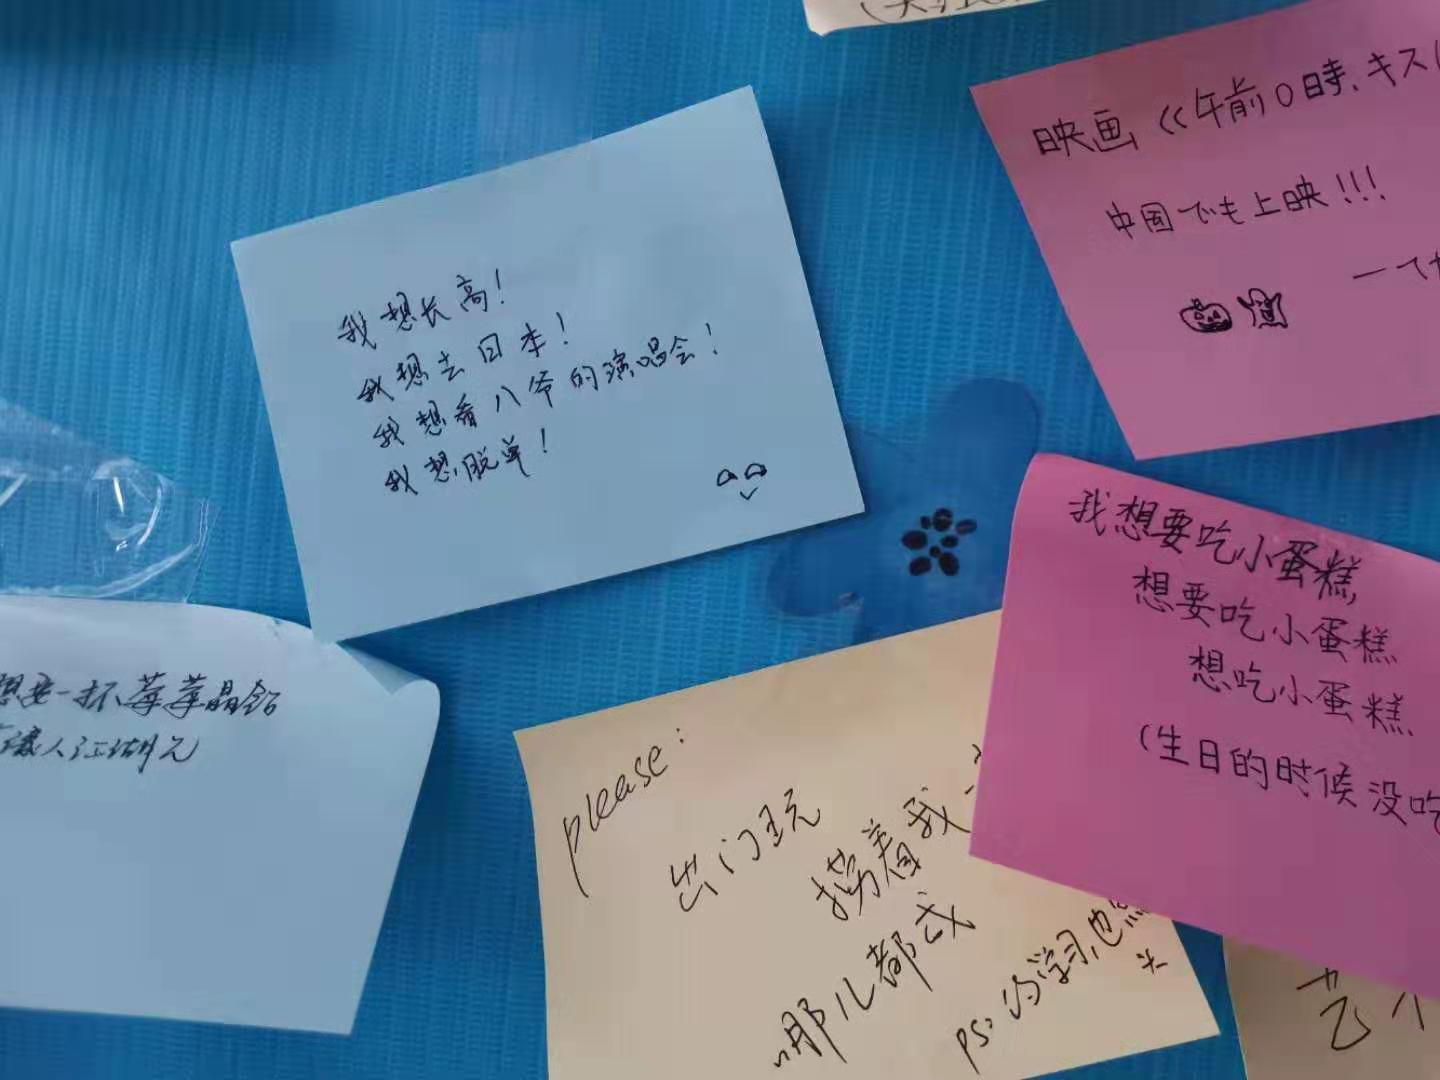 映画《午前0時、キス
中国でも上映!!!
我想长高!
我想去日本!
我想看八爷的演唱会!
我想脱单!
我想要吃小蛋糕,
想要吃小蛋糕
想吃小蛋糕
(生日的时候没吃
想要一杯莓莓晶
人江湖
please:
出门玩
捞着我
哪儿都成
ps: 学习也